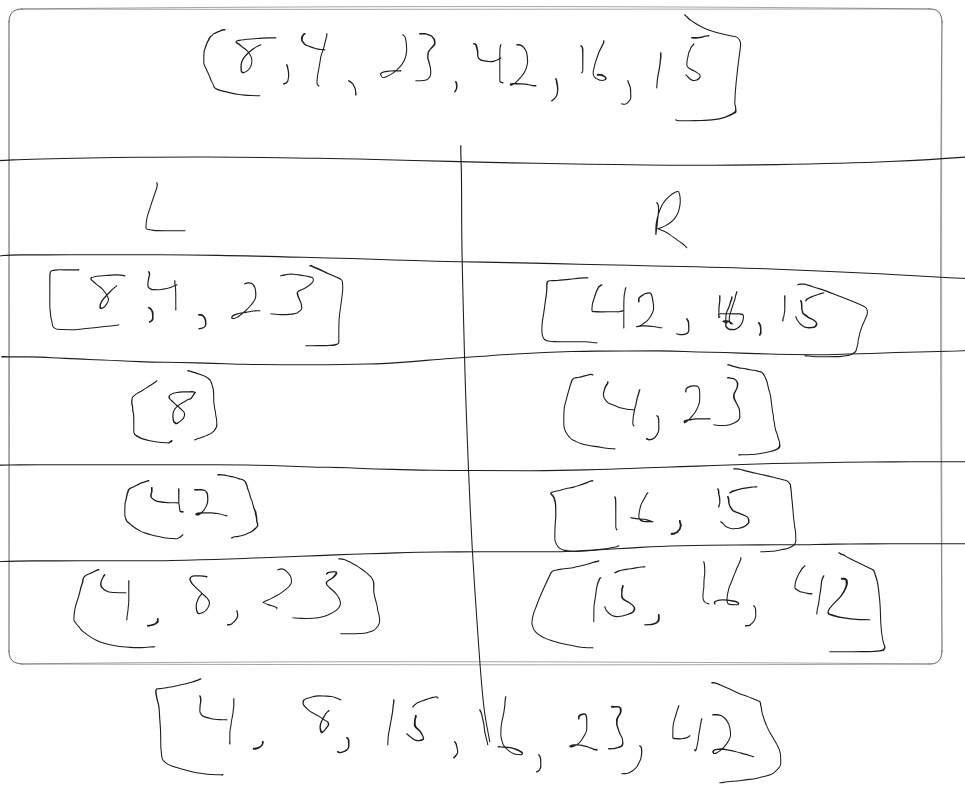 [8, 4, 23, 42, 16, 15]
L R
[8, 4, 23] [42, 16, 15]
[8] [4, 23]
[42] [16, 15]
[4, 8, 23] [15, 16, 42]
[4, 8, 15, 16, 23, 42]